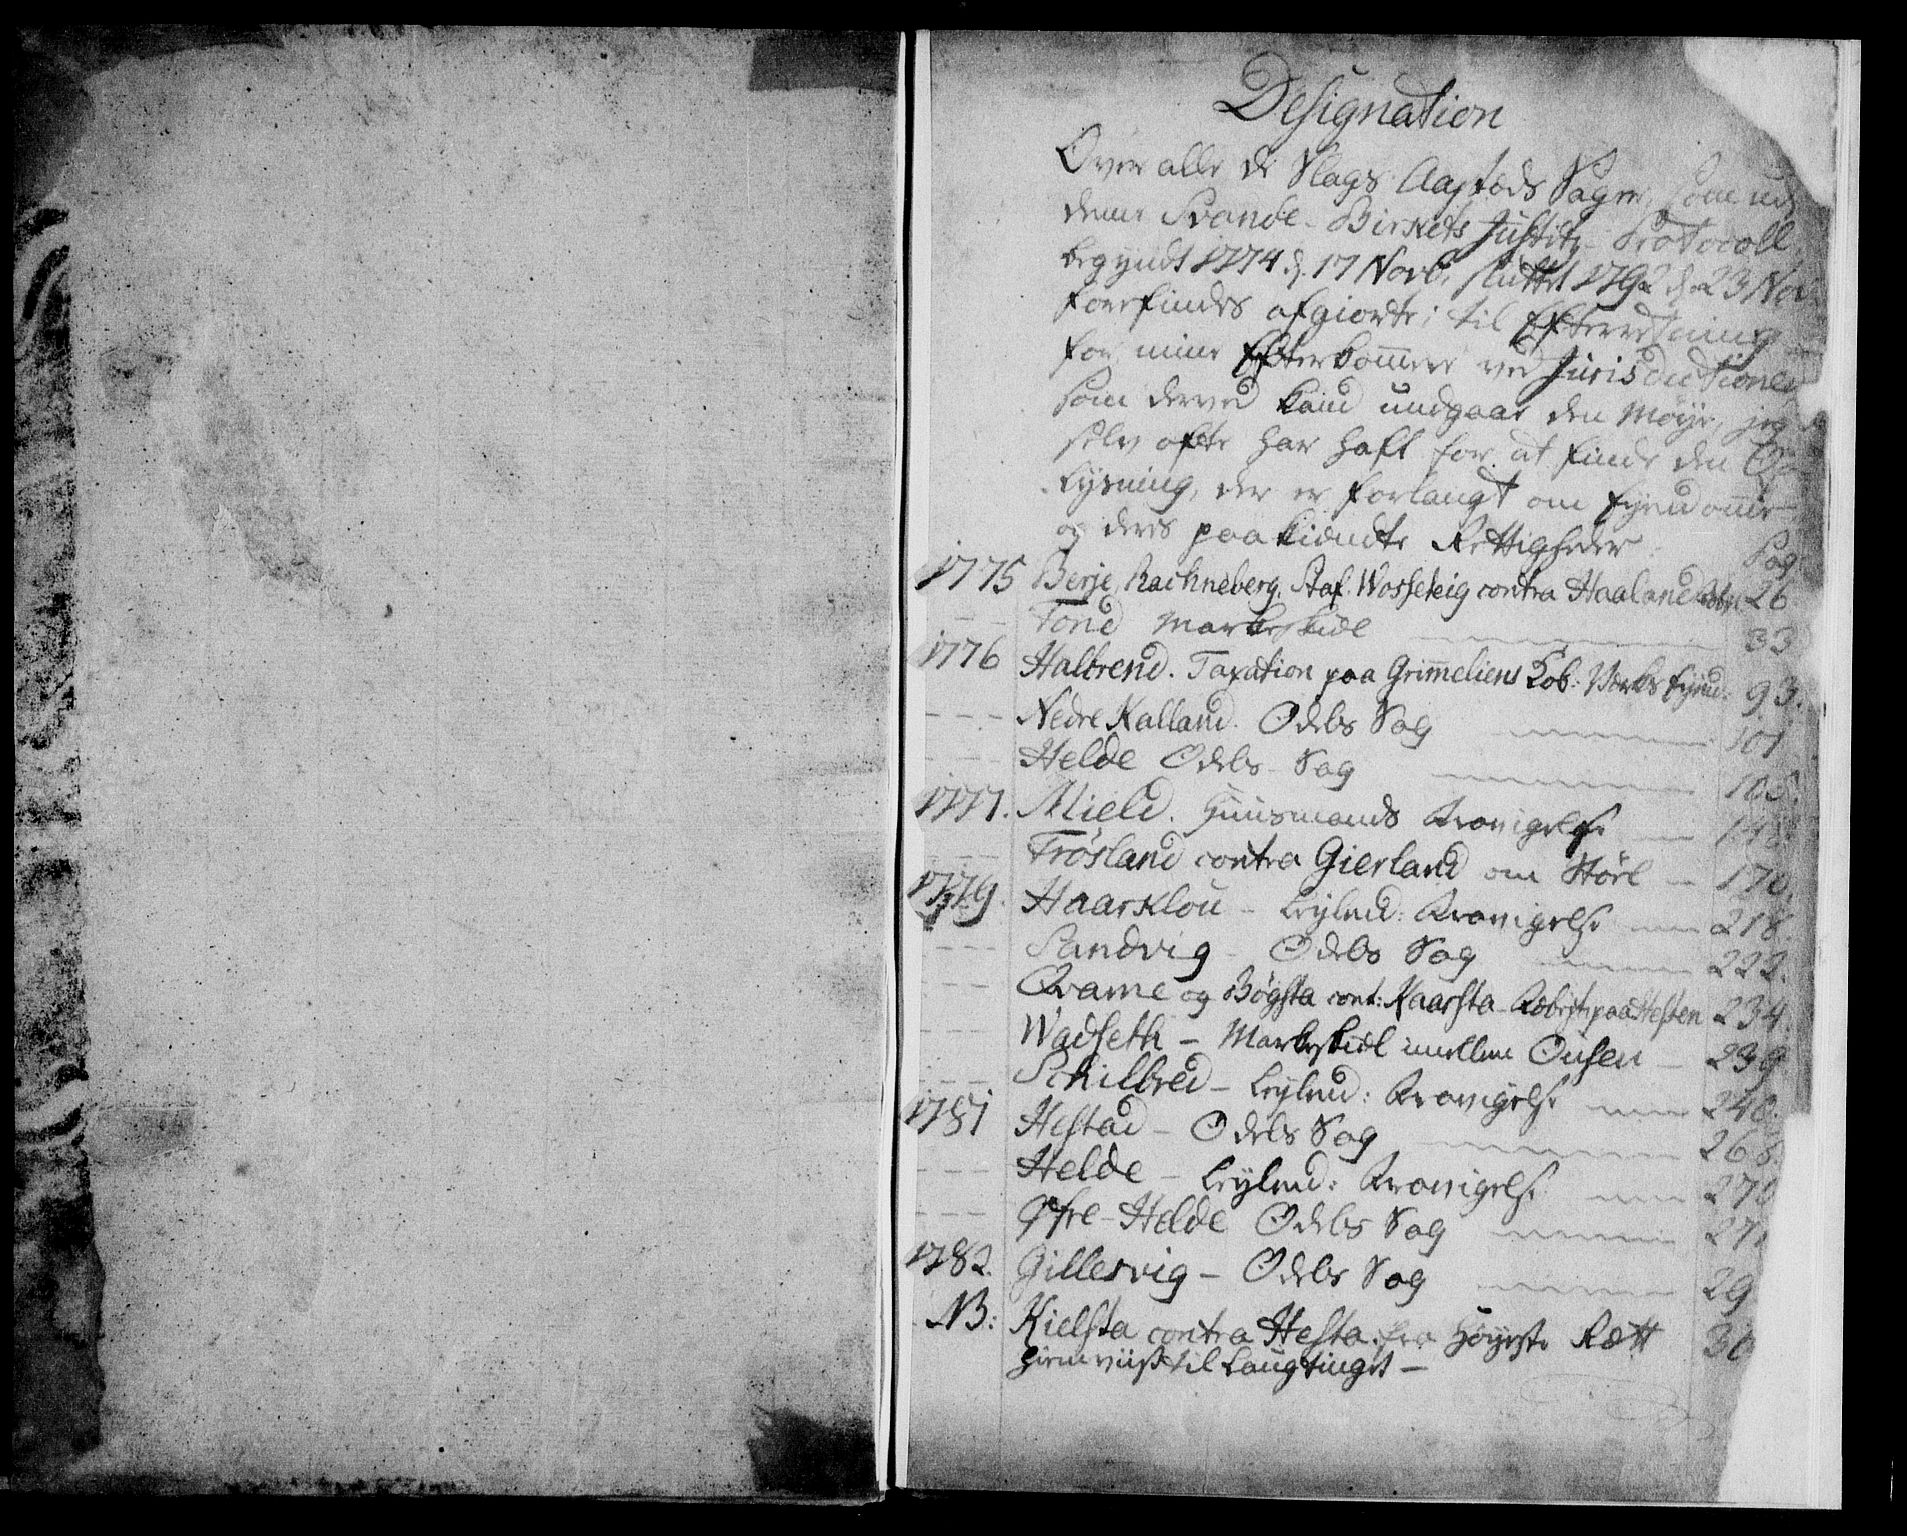 Designation
Over alle de Slags Aasteds Sager, som udj
denne Svanøe-Birkets Justitz-Protocoll,
begyndt 1774 d. 17 Novb. sluttet 1792 d. 23 Nov
forefindes afgiorte; til Efterretning
for mine Efterkommere ved Jurisdictionen
som derved kand undgaae den Møye, jeg
selv ofte har haft for at finde den Op
lysning, der er forlangt om Eyendomme
og deres paakiendte Rettigheder
Pag.
1775 Berje, Rachneberg, Staf. Wosseteig contra Haaland 26
--- Tond Markeskiel 33
1776 Halbrend. Taxation paa Grimeliens Kob: Verks Eyend: 93.
--- Nedre Kalland. Odels Sag 101
--- Helde Odels-Sag 105.
1777. Mield. Huusmands Uravigelse 148.
--- Frøsland contra Gierland om Støel 170.
1779. Haarklou - Leylend: Uravigelse 218.
--- Sandvig - Odels Sag 222.
--- Qvame og Bøgsta cont: Kaarsta - paa Hesten 234.
--- Wadseth - Markeskiel imellem Ousen 239
--- Schilbred - Leylend: Uravigelse 240.
1781 Hestad - Odels Sag 268.
--- Helde - Leylend: Uravigelse 270
--- Øfre-Helde Odels Sag 27
1782. Gillesvig - Odels Sag 29
NB: Kielsta contra Hesta, fra Høyeste Rætt 30
hiemviist til Laugtinget -